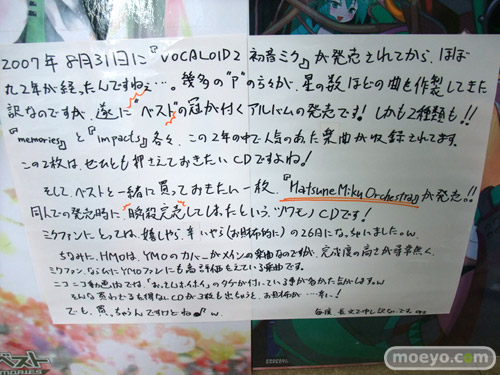 2007年8月31日に『VOCALOID2 初音ミク』が発売されてから、ほぼ
丸2年が経ったんですねぇ…。幾多の"P"の方々が、星の数ほどの曲を作製してきた
訳なのですが、遂に"ベスト"の冠が付くアルバムの発売です!しかも2種類も!!
『memories』と『impacts』各々、この2年の中で人気のあった楽曲が収録されてます。
この2枚は、ぜひとも押さえておきたいCDですよね!
そして、ベストと一緒に買っておきたい一枚、『Hatsune Miku Orchestra』が発売。!!
同人での発売時に、瞬殺完売してしまったという、ツワモノCDです!
ミクファンにとっては、嬉しやら、辛いやら(お財布的に)の26日になっちゃいました。w
ちなみに、HMOは、YMOのカバーがメインの楽曲なのですが、完成度の高さが尋常無く、
ミクファンならびにYMOファンにも高評価をえている楽曲です。
ニコニコ動画内では、
そんな買わざるを得ないCDが3枚も出ちゃうと、お財布が…キー!
でも、買っちゃうんですけどね♪w
毎度長文で申し訳ないです。
ベスト
MORIES
moeyo.com